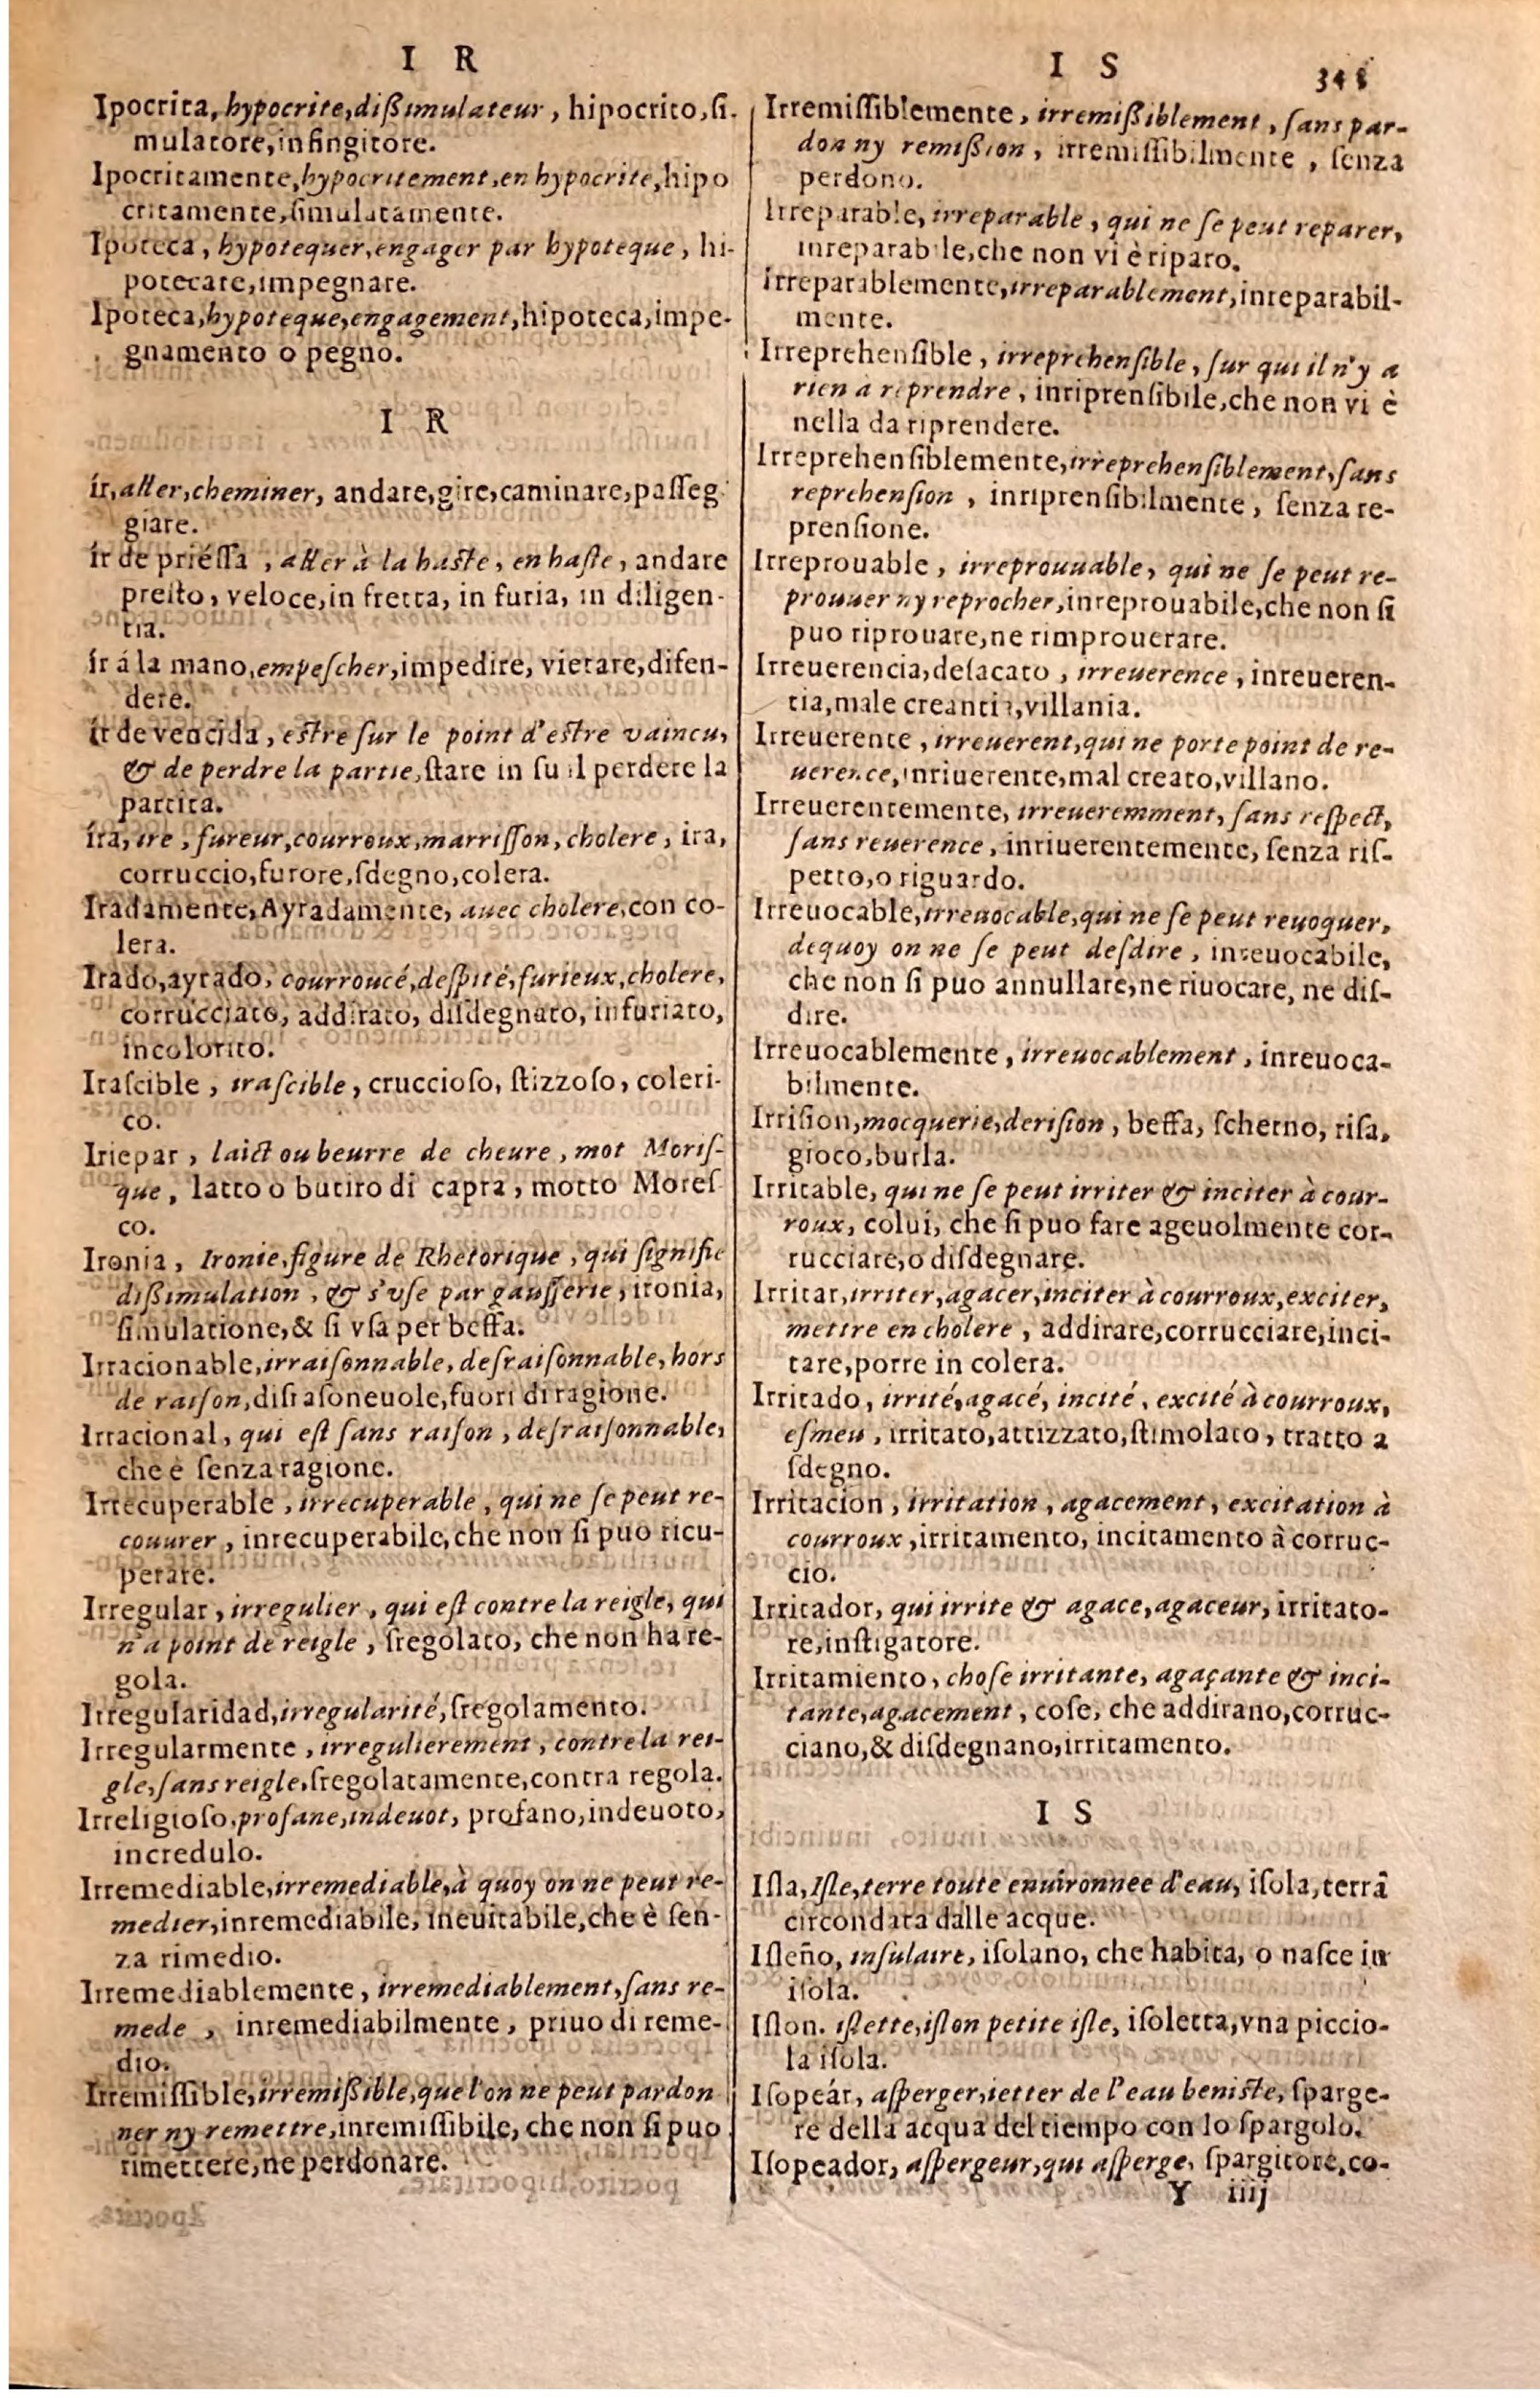 I R
Ipocrita, hypocrite, dißimulateur, hipocrito, ſi-
mulatore, infingitore.
Ipocritamente, hypocritement, en hypocrite, hipo
critamente, ſimulatamente.
Ipoteca, hypotequer, engager par hypoteque, hi-
potecare, impegnare.
Ipoteca, hypoteque, engagement, hipoteca, impe-
gnamento o pegno.
I R
ír, aller, cheminer, andare, gire, caminare, paſſeg
giare.
ír de priéſſa, aller à la haste, en haſte, andare
preſto, veloce, in fretta, in furia, in diligen-
tia.
ír á la mano, empeſcher, impedire, vietare, difen-
dere.
ír de vencida, estre ſur le point d'estre vaincu,
& de perdre la partie, ſtare in ſu il perdere la
partita.
íra, ire, fureur, courroux, marriſſon, cholere, ira,
corruccio, furore, ſdegno, colera.
Iradamente, Ayradamente, auec cholere, con co-
lera.
Irado, ayrado, courroucé, deſpité, furieux, cholere,
corrucciato, addirato, diſdegnato, infuriato,
incolorito.
Iraſcible, iraſcible, cruccioſo, ſtizzoſo, coleri-
co.
Iriepar, laict ou beurre de cheure, mot Moriſ-
que, latto o butiro di capra, motto Moreſ
co.
Ironia, Ironie, figure de Rhetorique, qui ſignifie
dißimulation, & s'vſe par gauſſerie, ironia,
ſimulatione, & ſi vſa per beffa.
Irracionable, irraiſonnable, deſraiſonnable, hors
de raiſon, diſraſoneuole, fuori di ragione.
Irracional, qui eſt ſans raiſon, deſraiſonnable,
che è ſenza ragione.
Irrecuperable, irrecuperable, qui ne ſe peut re-
couurer, inrecuperabile, che non ſi puo ricu-
perare.
Irregular, irregulier, qui eſt contre la reigle, qui
n'a point de reigle, ſregolato, che non ha re-
gola.
Irregularidad, irregularité, ſregolamento.
Irregularmente, irregulierement, contre la rei-
gle, ſans reigle, ſregolatamente, contra regola.
Irreligioſo, profane, indeuot, profano, indeuoto,
incredulo.
Irremediable, irremediable, à quoy on ne peut re-
medier, inremediabile, ineuitabile, che è ſen-
za rimedio.
Irremediablemente, irremediablement, ſans re-
mede, inremediabilmente, priuo di reme-
dio.
Irremiſſible, irremißible, que l'on ne peut pardon
ner ny remettre, inremiſſibile, che non ſi puo
rimettere, ne perdonare.
I S
Irremiſſiblemente, irremißiblement, ſans par-
don ny remißion, irremiſſibilmente, ſenza
perdono.
Irreparable, irreparable, qui ne ſe peut reparer,
inreparabile, che non vi è riparo.
Irreparablemente, irreparablement, inreparabil-
mente.
Irreprehenſible, irreprehenſible, ſur qui il n'y a
rien à reprendre, inriprenſibile, che non vi è
nella da riprendere.
Irreprehenſiblemente, irreprehenſiblement, ſans
reprehenſion, inriprenſibilmente, ſenza re-
prenſione.
Irreprouable, irreprouuable, qui ne ſe peut re-
prouuer ny reprocher, inreprouabile, che non ſi
puo riprouare, ne rimprouerare.
Irreuerencia, deſacato, irreuerence, inreueren-
tia, male creantia, villania.
Irreuerente, irreuerent, qui ne porte point de re-
uerence, inriuerente, mal creato, villano.
Irreuerentemente, irreueremment, ſans reſpect,
ſans reuerence, inriuerentemente, ſenza riſ-
petto, o riguardo.
Irreuocable, irreuocable, qui ne ſe peut reuoquer,
dequoy on ne ſe peut deſdire, inreuocabile,
che non ſi puo annullare, ne riuocare, ne diſ-
dire.
Irreuocablemente, irreuocablement, inreuoca-
bilmente.
Irriſion, mocquerie, deriſion, beffa, ſcherno, riſa,
gioco, burla.
Irritable, qui ne ſe peut irriter & inciter à cour-
roux, colui, che ſi puo fare ageuolmente cor-
rucciare, o diſdegnare.
Irritar, irriter, agacer, inciter à courroux, exciter,
mettre en cholere, addirare, corrucciare, inci-
tare, porre in colera.
Irritado, irrité, agacé, incité, excité à courroux,
eſmeu, irritato, attizzato, ſtimolato, tratto a
ſdegno.
Irritacion, irritation, agacement, excitation à
courroux, irritamento, incitamento à corruc-
cio.
Irritador, qui irrite & agace, agaceur, irritato-
re, inſtigatore.
Irritamiento, choſe irritante, agaçante & inci-
tante, agacement, coſe, che addirano, corruc-
ciano, & diſdegnano, irritamento.
I S
Iſla, Iſle, terre toute enuironnee d'eau, iſola, terrâ
circondata dalle acque.
Iſleño, inſulaire, iſolano, che habita, o naſce in
iſola.
Iſlon. iſlette, iſlon petite iſle, iſoletta, vna piccio-
la iſola.
Iſopeár, aſperger, ietter de l'eau beniste, ſparge-
re della acqua del tiempo con lo ſpargolo.
Iſopeador, aſpergeur, qui aſperge, ſpargitore, co-
Y iiij